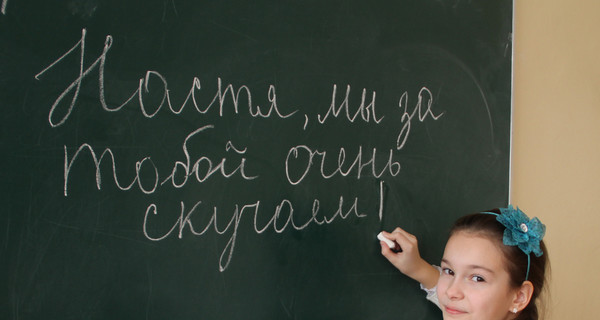 Настя, мы за
тобой очень
скучаем!